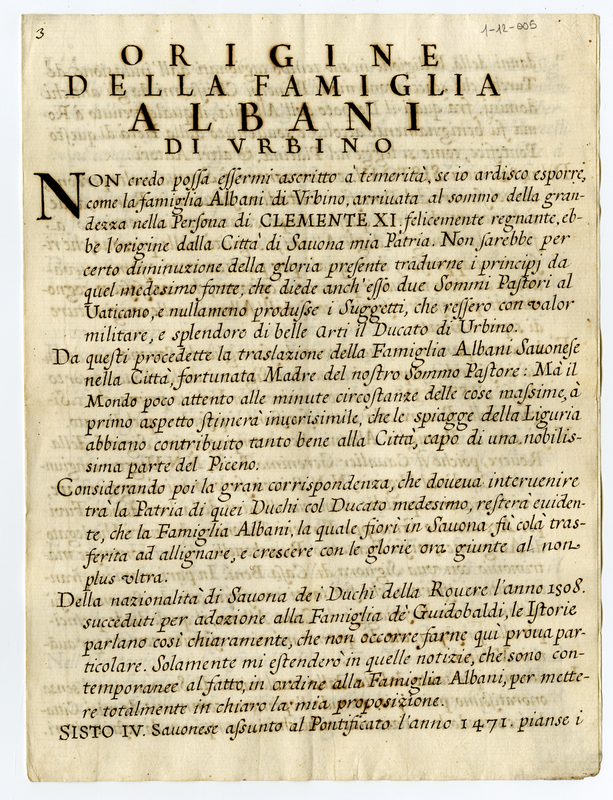 3
1-12-005
ORIGINE
DELLA FAMIGLIA
ALBANI
DI VRBINO
NON credo possa essermi ascritto à temerità, se io ardisco esporre,
come la famiglia Albani di Vrbino, arriuata al sommo della gran-
dezza nella Persona di CLEMENTE XI. felicemente regnante, eb-
be l'origine dalla Città di Sauona mia Patria. Non sarebbe per
certo diminuzione della gloria presente tradurne i principj da
quel medesimo fonte, che diede anch'esso due Sommi Pastori al
Vaticano, e nullameno produsse i Suggetti, che ressero con valor
militare, e splendore di belle Arti il Ducato di Urbino.
Da questi procedette la traslazione della Famiglia Albani Sauonese
nella Città, fortunata Madre del nostro Sommo Pastore: Mà il
Mondo poco attento alle minute circostanze delle cose massime, à
primo aspetto stimerà inuerisimile, che le spiagge della Liguria
abbiano contribuito tanto bene alla Città, capo di una nobilis-
sima parte del Piceno.
Considerando poi la gran corrispondenza, che doueua interuenire
trà la Patria di quei Duchi col Ducato medesimo, resterà euiden-
te, che la Famiglia Albani, la quale fiorì in Sauona fù colà tras-
ferita ad allignare, e crescere con le glorie ora giunte al non
plus vltra.
Della nazionalità di Sauona de i Duchi della Rouere l'anno 1508.
succeduti per adozione alla Famiglia de' Guidobaldi, le Istorie
parlano così chiaramente, che non occorre farne quì proua par-
ticolare. Solamente mi estenderò in quelle notizie, che sono con-
temporanee al fatto, in ordine alla Famiglia Albani, per mette-
re totalmente in chiaro la mia proposizione.
SISTO IV. Sauonese assunto al Pontificato l'anno 1471. pianse i